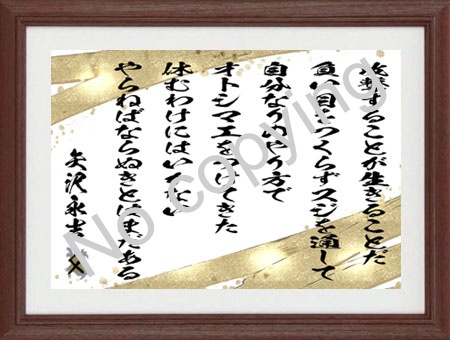 攻撃することが生きることだ
負い目をつくらずスジを通して
自分なりのやり方で
オトシマエをつけてきた
休むわけにはいかない
やらねばならぬことはまだある
矢沢永吉
No copying